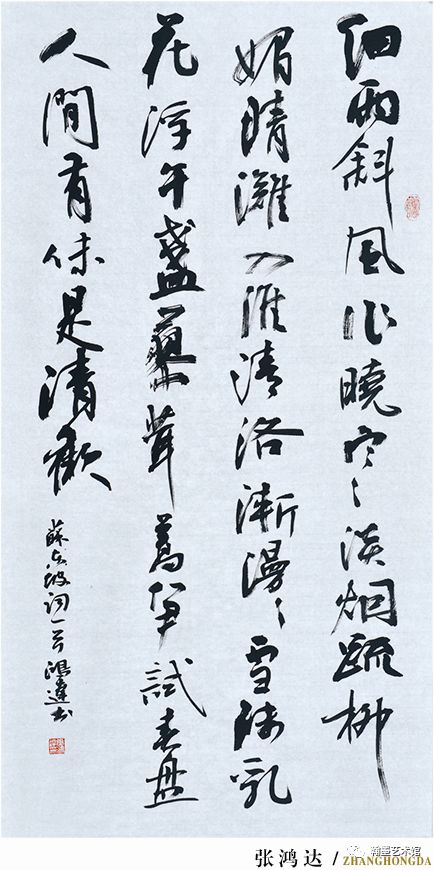 細雨斜風作曉寒淡烟疏柳
媚晴灘入淮清洛漸漫〻雪沫乳
花浮午盞蓼茸蒿笋試春盤
人間有味是清歡
蘇东坡词一首 鴻達书
张鸿达 / ZHANGHONGDA
瀚墨艺术馆